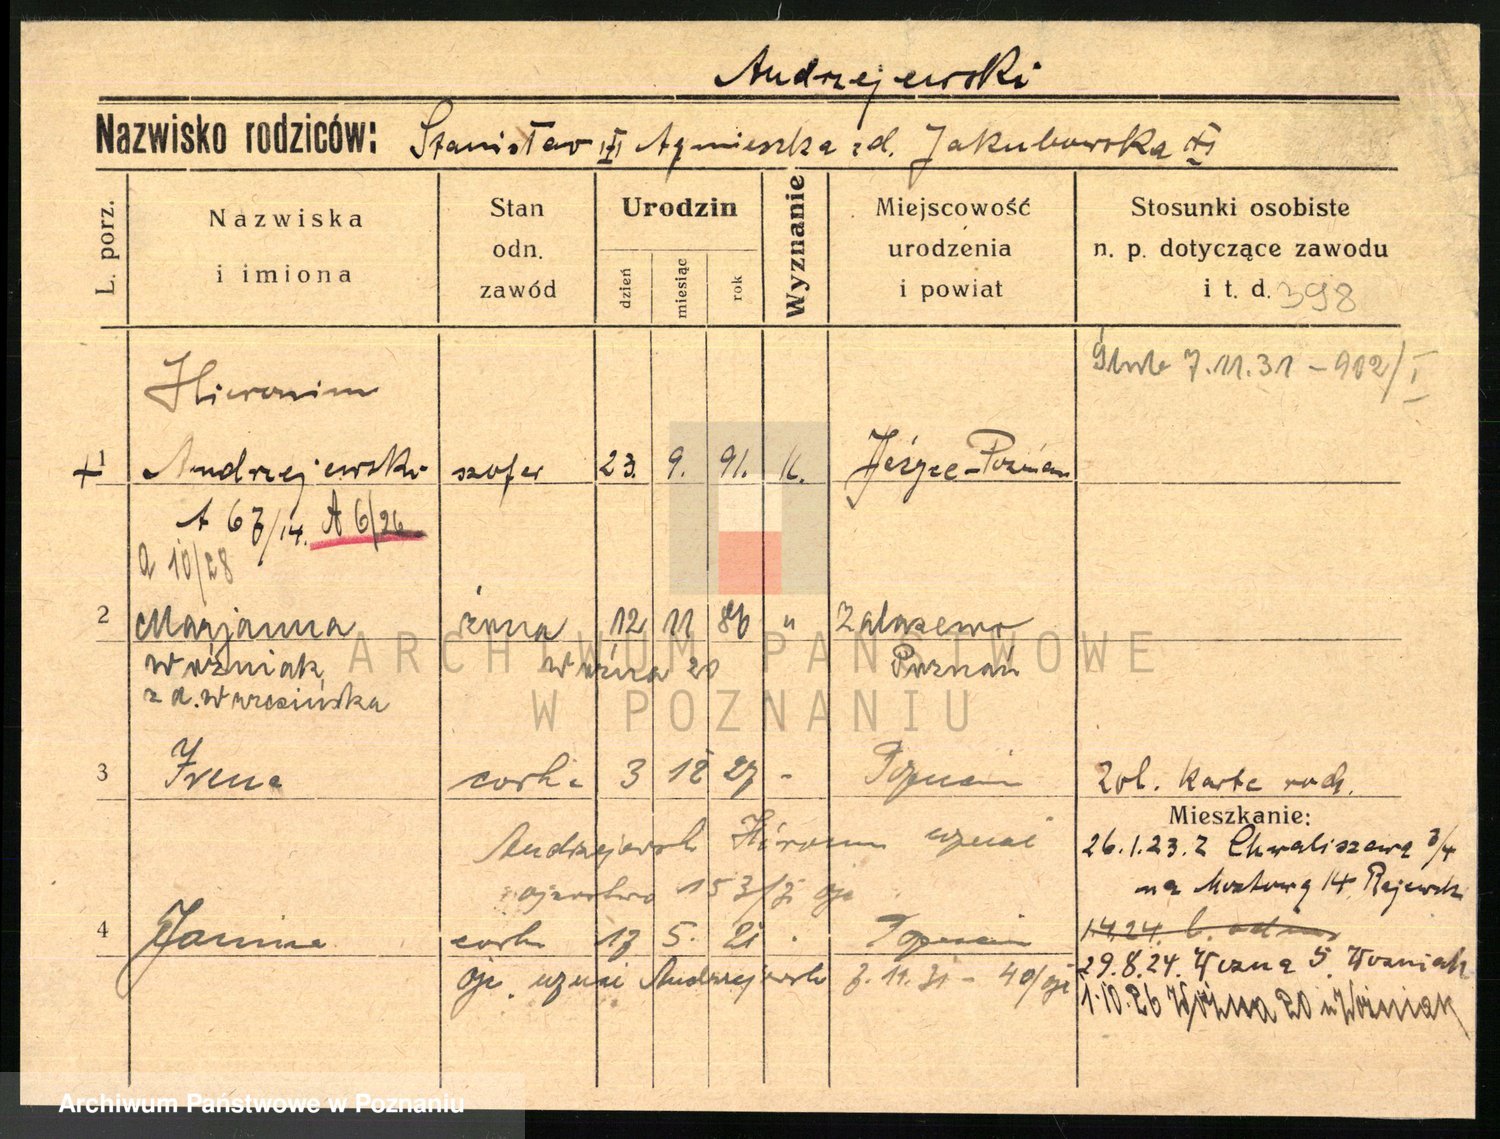 Andrzejewski
Nazwisko rodziców: Stanisław Agnieszka zd. Jakubowska
L. porz. Nazwiska i imiona Stan odn. zawód Urodzin dzień miesiąc rok Wyznanie Miejscowość urodzenia i powiat Stosunki osobiste n. p. dotyczące zawodu i t. d. 398
Hieronim 7.11.31 - 902/I
1 Andrzejewski szofer 23. 9. 91. K. Jeżyce-Poznań
A 67/14. A 6/26
a 10/28
2 Marjanna żona 12 11 86 " Zalasewo
Woźniak Woźna 20 Poznań
zd. Wrzesińska
3 Irena córka 3 12 27 - Poznań Zoł. Karta rodz.
Mieszkanie:
Andrzejewski Hieronim uznał 26.1.23. Z Chwaliszewa 3/4
ojcostwo 153/ na Mostową 14 Rajewski
4 Janina córka 17 5. 21 . Poznań 1.4.24.
oje. uznał Andrzejewski 7.11.31 - 40/oje 29.8.24. Woźna 5. Woźniak
1.10.26 Woźna 20 u Woźniak
ARCHIWUM PAŃSTWOWE
W POZNANIU
Archiwum Państwowe w Poznaniu